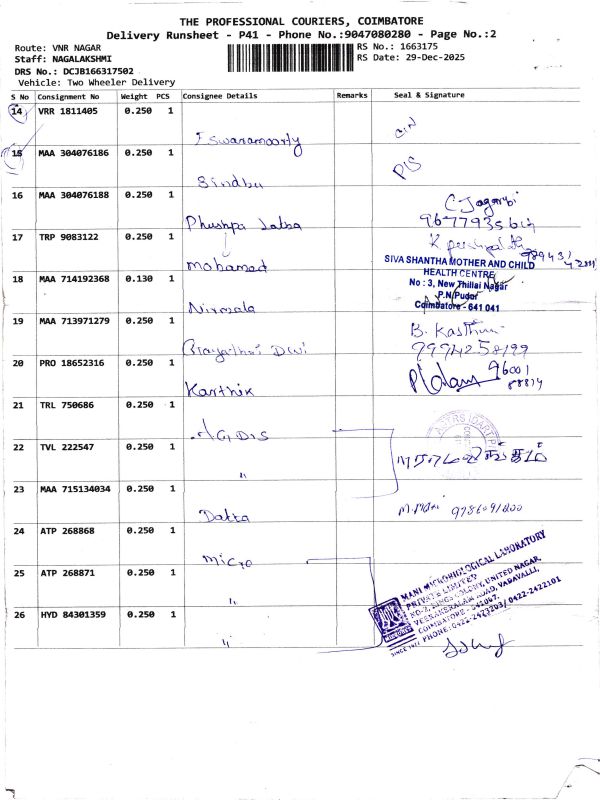 THE PROFESSIONAL COURIERS, COIMBATORE
Delivery Runsheet - P41 - Phone No.:9047080280 - Page No.:2
Route: VNR NAGAR
Staff: NAGALAKSHMI
DRS No.: DCJB166317502
Vehicle: Two Wheeler Delivery
RS No.: 1663175
RS Date: 29-Dec-2025
S No Consignment No Weight PCS Consignee Details Remarks Seal & Signature
14 VRR 1811405 0.250 1
Eswaramoorty
15 MAA 304076186 0.250 1
Sindhu
16 MAA 304076188 0.250 1
Phushpa Latha
C Jagarbi
17 TRP 9083122 0.250 1
mohamed
SIVA SHANTHA MOTHER AND CHILD
HEALTH CENTRE
No : 3, New Thillai Nagar
P.N.Pudur
Coimbatore - 641 041
18 MAA 714192368 0.130 1
Nirmala
19 MAA 713971279 0.250 1
B. Kasthuri
20 PRO 18652316 0.250 1
Karthik
96001
88814
21 TRL 750686 0.250 1
22 TVL 222547 0.250 1
"
23 MAA 715134034 0.250 1
Datta
24 ATP 268868 0.250 1
micro
25 ATP 268871 0.250 1
"
26 HYD 84301359 0.250 1
"
MANI MICROBIOLOGICAL LABORATORY
PRIVATE LIMITED
NO-2, KINGS COLONY, UNITED NAGAR,
VEERAKERALAM ROAD, VADAVALLI,
COIMBATORE - 641007.
PHONE : 0422-2423203/ 0422-2422101